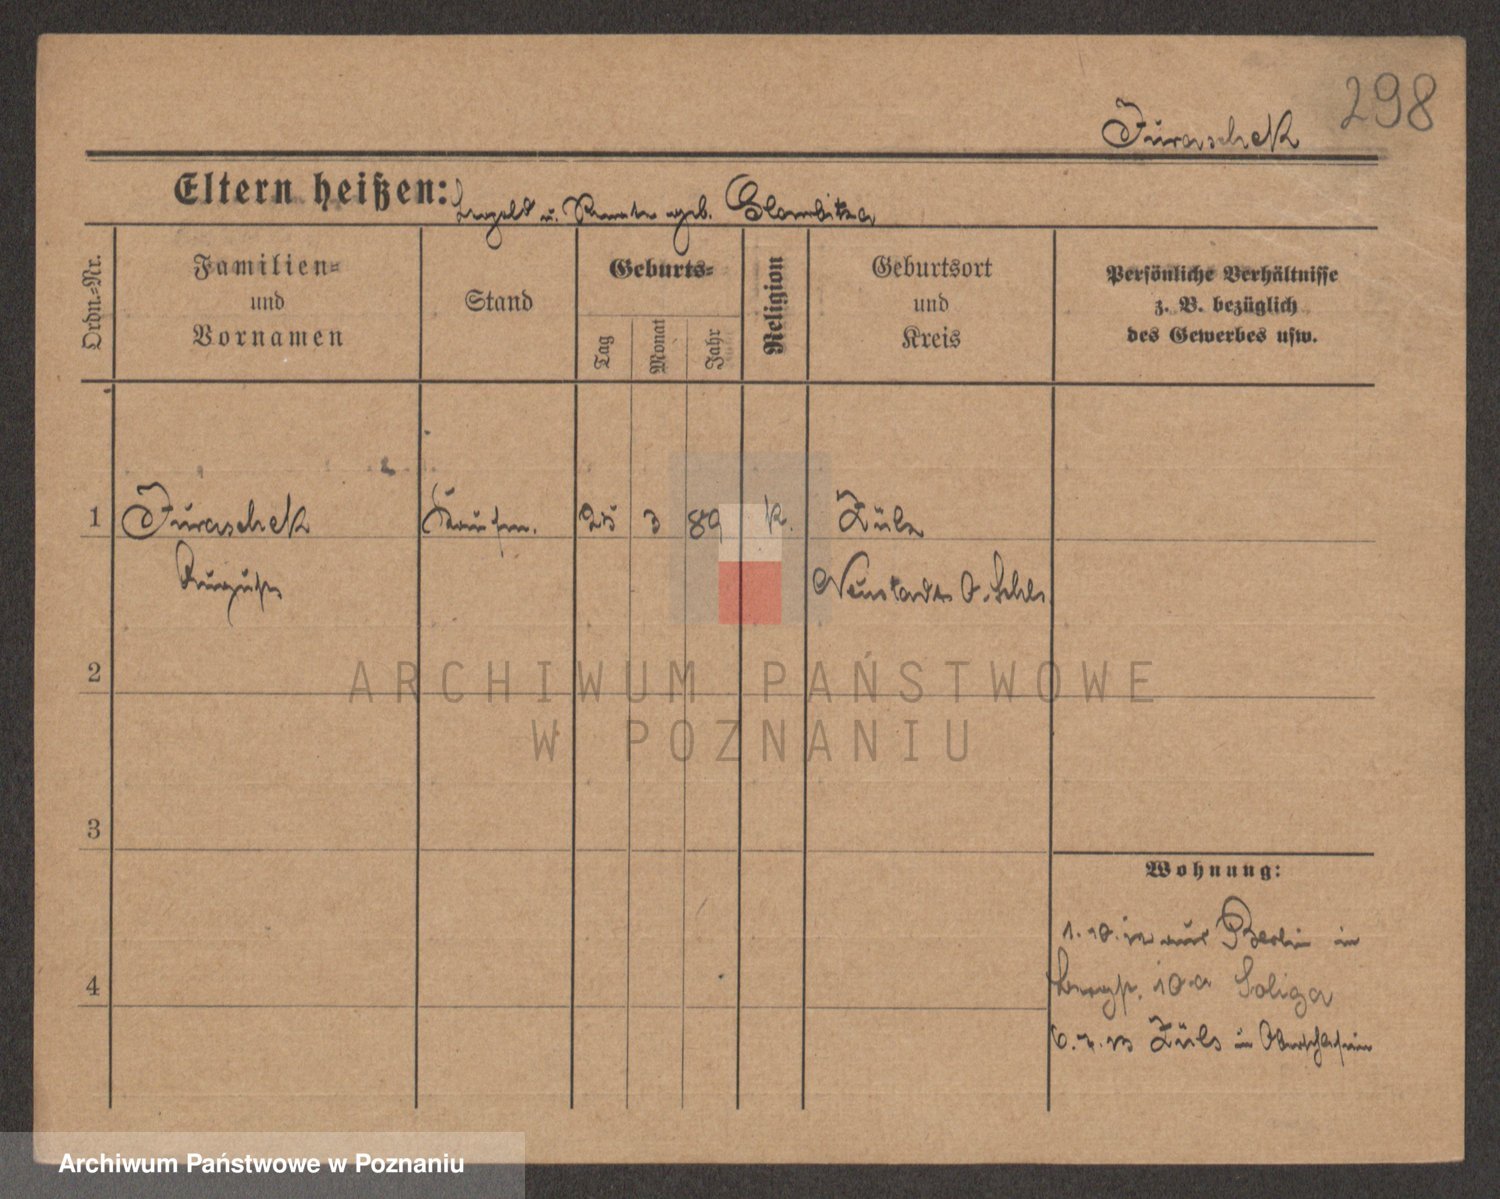 298
Juraschek
Eltern heißen: u. geb. Glombitza
Ordn.-Nr.
Familien-
und
Vornamen
Stand
Geburts-
Tag
Monat
Jahr
Religion
Geburtsort
und
Kreis
Persönliche Verhältnisse
z. B. bezüglich
des Gewerbes usw.
1 Juraschek Kaufm. 25 3 89 k. Zülz
August Neustadt O. Schls.
2
ARCHIWUM PAŃSTWOWE
W POZNANIU
3
Wohnung:
1. 10. 12 aus Berlin in
10a Soliga
4
6. 7. 13 Zülz in Oberschlesien
Archiwum Państwowe w Poznaniu